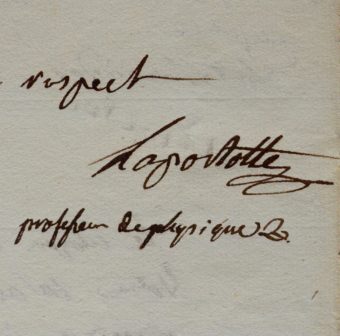 respect
Lapostolle
professeur de physique &.